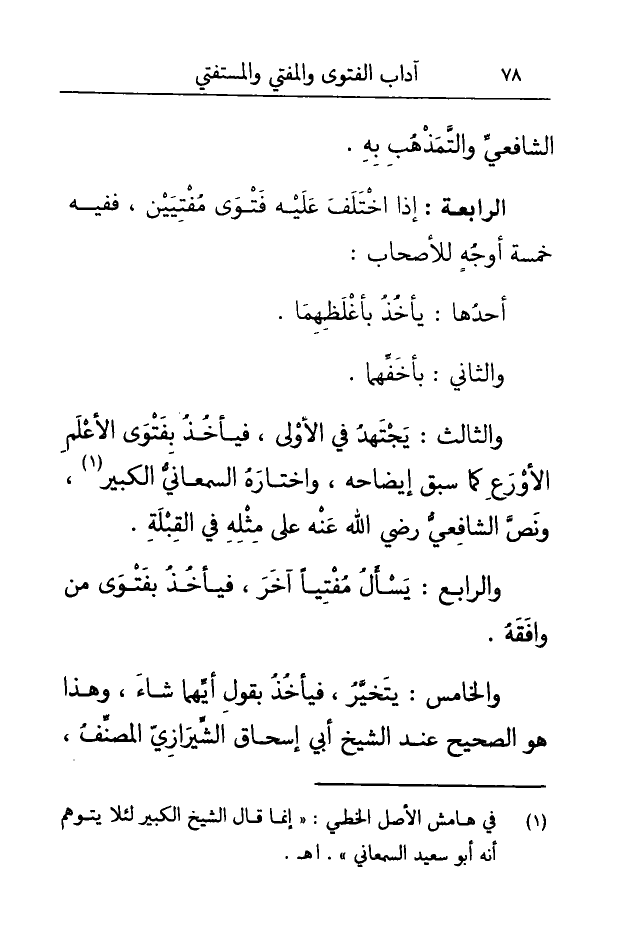 ٧٨ آداب الفتوى والمفتي والمستفتي
الشافعيِّ والتَّمَذْهُبِ بِهِ .
الرابعـة : إذا اخْتَلَفَ عَلَيْـه فَتْـوَى مُفْتِيَيْـن ، ففيـــه
خمسة أوجُهٍ للأصحاب :
أحدُها : يأخُذُ بأغْلَظِهِمَا .
والثاني : بأخَفِّهما .
والثالث : يَجْتَهدُ في الأوْلى ، فيـأخُـذُ بِفَتْوَى الأعْلَمِ
الأوْرَعِ كما سبق إيضاحه ، واختـارَهُ السمعـانيُّ الكبير(١) ،
ونَصَّ الشافِعيُّ رضي الله عَنْه على مِثْلِهِ في القِبْلَةِ .
والرابـع : يَسْـأَلُ مُفْتِيـاً آخَرَ ، فيـأخُـذُ بفَتْـوَى من
وافَقَهُ .
والخامس : يتَخيَّرُ ، فيأخُذُ بقولِ أيِّهما شـاءَ ، وهـذا
هو الصحيح عنـد الشيخ أبي إسحـاق الشِّيرَازِيّ المصنِّفُ ،
(١) في هـامش الأصل الخطـي : « إنمـا قـال الشيخ الكبير لئلا يتـوهم
أنه أبو سعيد السمعاني » . اهـ .